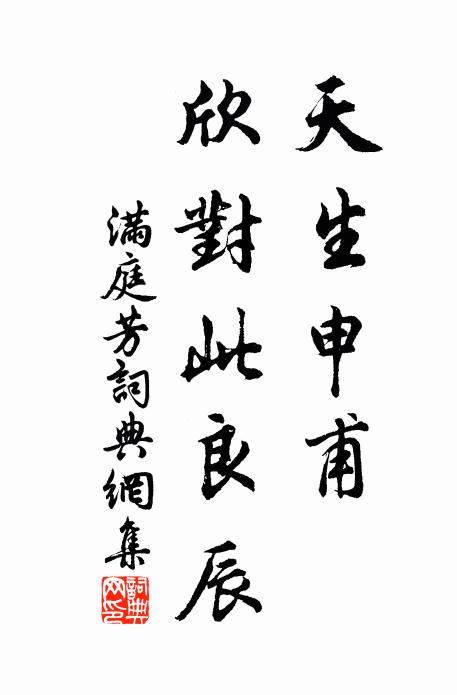 天生申甫
欣對此良辰
滿庭芳詞典網集
詞典
网印